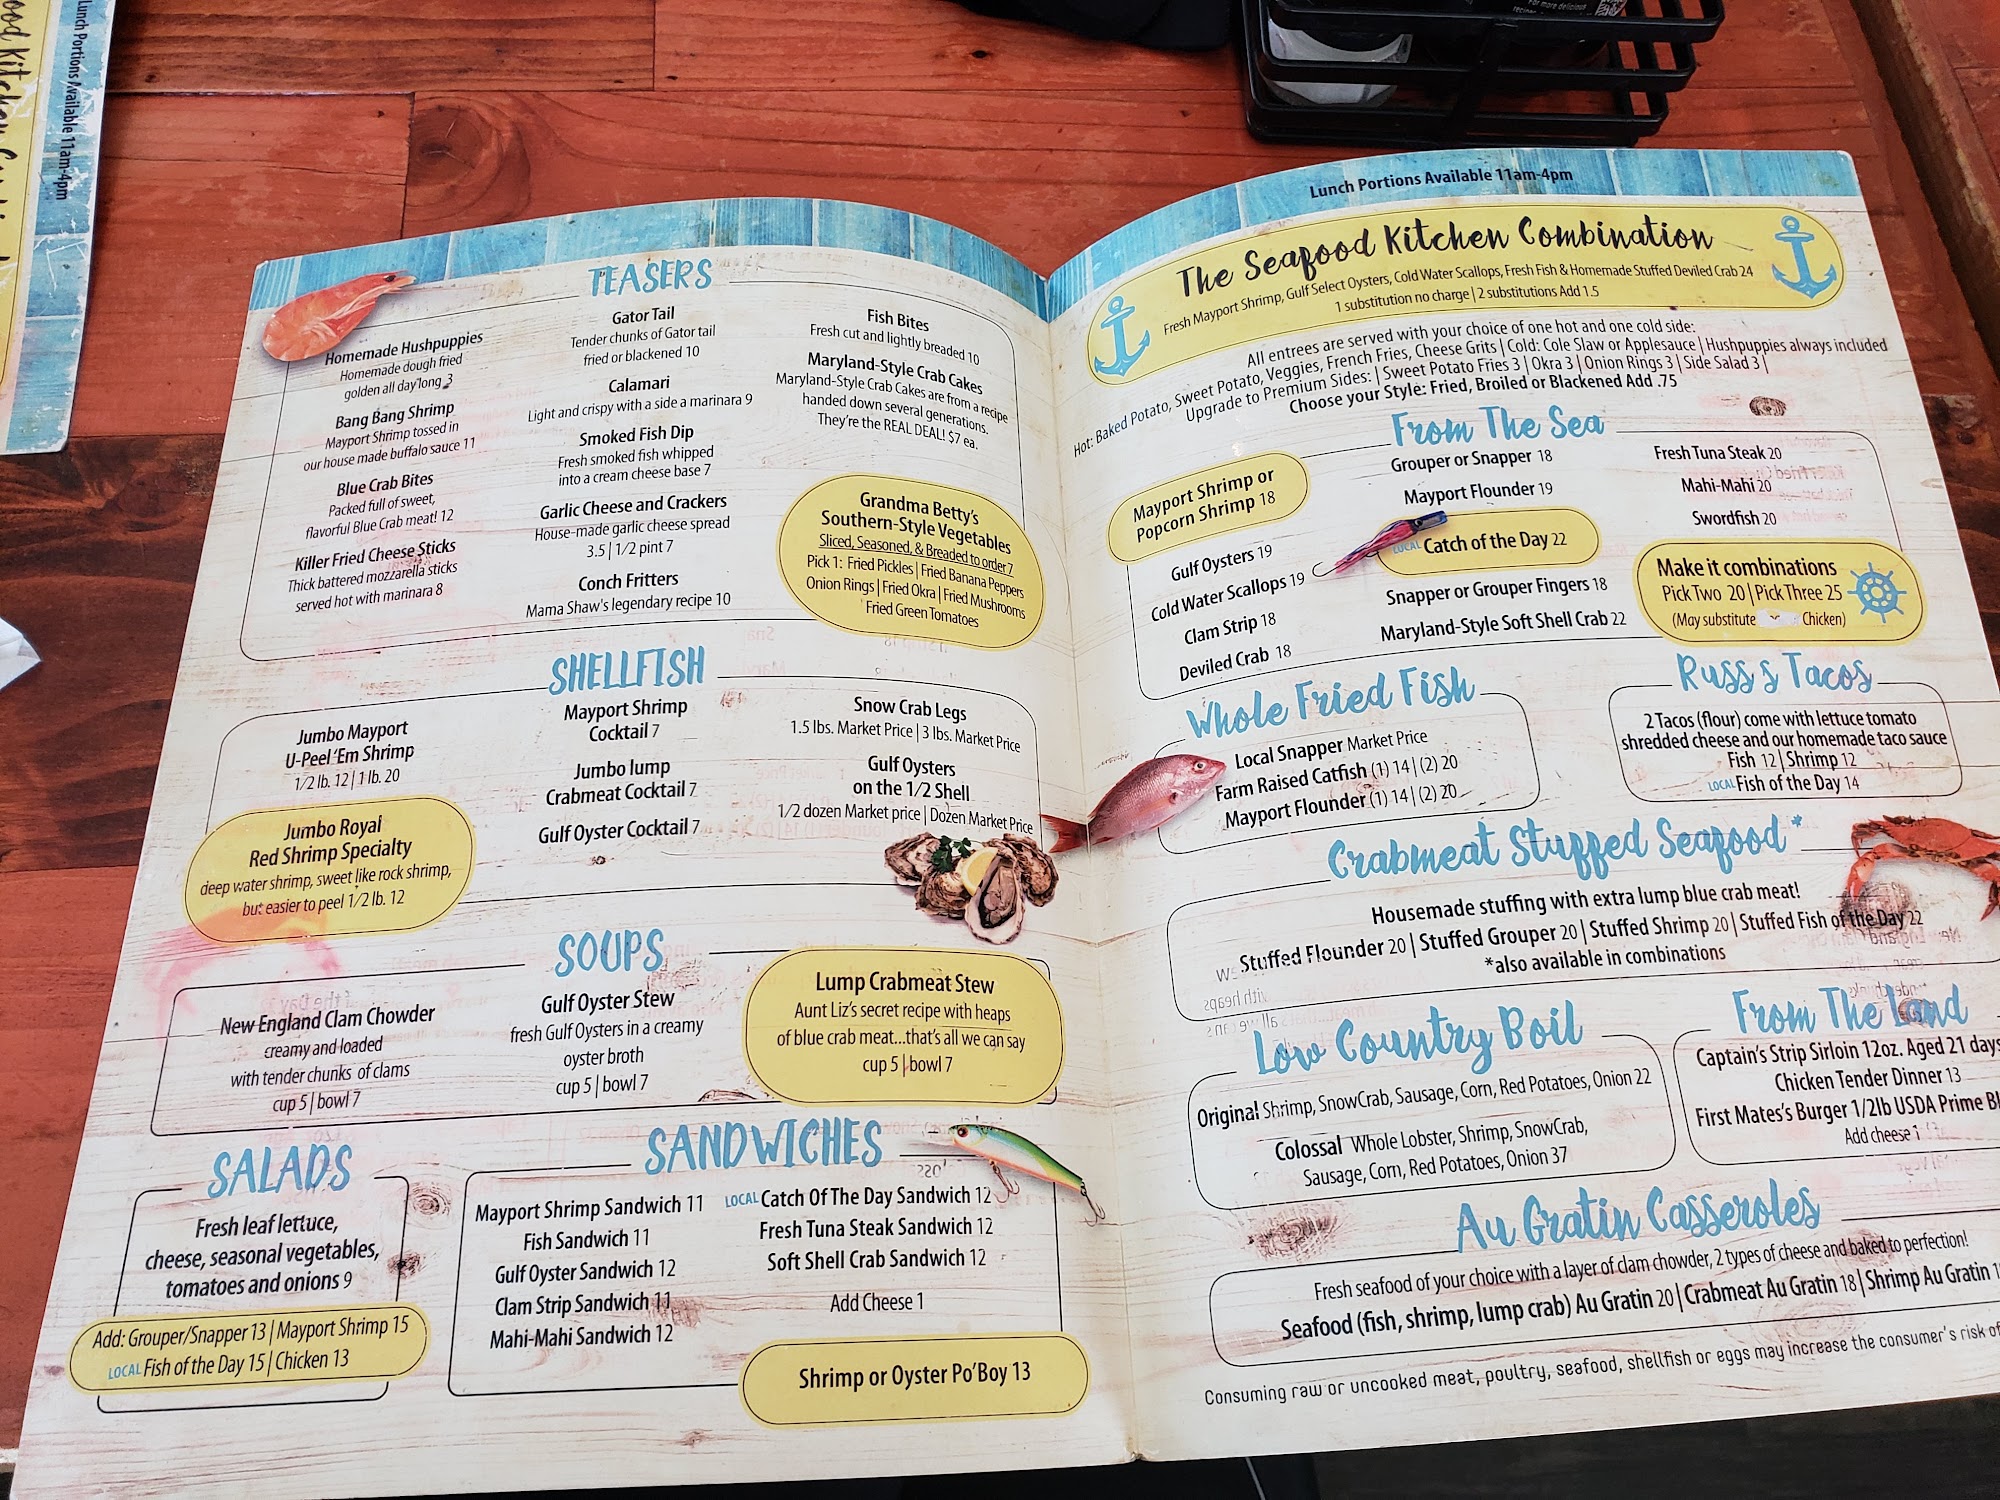 Lunch Portions Available 11am-4pm
TEASERS
Homemade Hushpuppies
Homemade dough fried
golden all day long 3
Bang Bang Shrimp
Mayport Shrimp tossed in
our house made buffalo sauce 11
Blue Crab Bites
Packed full of sweet,
flavorful Blue Crab meat! 12
Killer Fried Cheese Sticks
Thick battered mozzarella sticks
served hot with marinara 8
Gator Tail
Tender chunks of Gator tail
fried or blackened 10
Calamari
Light and crispy with a side a marinara 9
Smoked Fish Dip
Fresh smoked fish whipped
into a cream cheese base 7
Garlic Cheese and Crackers
House-made garlic cheese spread
3.5 | 1/2 pint 7
Conch Fritters
Mama Shaw's legendary recipe 10
Fish Bites
Fresh cut and lightly breaded 10
Maryland-Style Crab Cakes
Maryland-Style Crab Cakes are from a recipe
handed down several generations.
They're the REAL DEAL! $7 ea.
Grandma Betty's
Southern-Style Vegetables
Sliced, Seasoned, & Breaded to order 7
Pick 1: Fried Pickles | Fried Banana Peppers
Onion Rings | Fried Okra | Fried Mushrooms
Fried Green Tomatoes
SHELLFISH
Jumbo Mayport
U-Peel 'Em Shrimp
1/2 lb. 12 | 1 lb. 20
Jumbo Royal
Red Shrimp Specialty
deep water shrimp, sweet like rock shrimp,
but easier to peel 1/2 lb. 12
Mayport Shrimp
Cocktail 7
Jumbo lump
Crabmeat Cocktail 7
Gulf Oyster Cocktail 7
Snow Crab Legs
1.5 lbs. Market Price | 3 lbs. Market Price
Gulf Oysters
on the 1/2 Shell
1/2 dozen Market price | Dozen Market Price
SOUPS
New England Clam Chowder
creamy and loaded
with tender chunks of clams
cup 5 | bowl 7
Gulf Oyster Stew
fresh Gulf Oysters in a creamy
oyster broth
cup 5 | bowl 7
Lump Crabmeat Stew
Aunt Liz's secret recipe with heaps
of blue crab meat...that's all we can say
cup 5 | bowl 7
SALADS
Fresh leaf lettuce,
cheese, seasonal vegetables,
tomatoes and onions 9
Add: Grouper/Snapper 13 | Mayport Shrimp 15
LOCAL Fish of the Day 15 | Chicken 13
SANDWICHES
Mayport Shrimp Sandwich 11
Fish Sandwich 11
Gulf Oyster Sandwich 12
Clam Strip Sandwich 11
Mahi-Mahi Sandwich 12
LOCAL Catch Of The Day Sandwich 12
Fresh Tuna Steak Sandwich 12
Soft Shell Crab Sandwich 12
Add Cheese 1
Shrimp or Oyster Po'Boy 13
Lunch Portions Available 11am-4pm
The Seafood Kitchen Combination
Fresh Mayport Shrimp, Gulf Select Oysters, Cold Water Scallops, Fresh Fish & Homemade Stuffed Deviled Crab 24
1 substitution no charge | 2 substitutions Add 1.5
All entrees are served with your choice of one hot and one cold side:
Hot: Baked Potato, Sweet Potato, Veggies, French Fries, Cheese Grits | Cold: Cole Slaw or Applesauce | Hushpuppies always included
Upgrade to Premium Sides: | Sweet Potato Fries 3 | Okra 3 | Onion Rings 3 | Side Salad 3 |
Choose your Style: Fried, Broiled or Blackened Add .75
From The Sea
Mayport Shrimp or
Popcorn Shrimp 18
Gulf Oysters 19
Cold Water Scallops 19
Clam Strip 18
Deviled Crab 18
Grouper or Snapper 18
Mayport Flounder 19
LOCAL Catch of the Day 22
Snapper or Grouper Fingers 18
Maryland-Style Soft Shell Crab 22
Fresh Tuna Steak 20
Mahi-Mahi 20
Swordfish 20
Make it combinations
Pick Two 20 | Pick Three 25
(May substitute Chicken)
Whole Fried Fish
Local Snapper Market Price
Farm Raised Catfish (1) 14 | (2) 20
Mayport Flounder (1) 14 | (2) 20
Russ's Tacos
2 Tacos (flour) come with lettuce tomato
shredded cheese and our homemade taco sauce
Fish 12 | Shrimp 12
LOCAL Fish of the Day 14
Crabmeat Stuffed Seafood*
Housemade stuffing with extra lump blue crab meat!
Stuffed Flounder 20 | Stuffed Grouper 20 | Stuffed Shrimp 20 | Stuffed Fish of the Day 22
*also available in combinations
Low Country Boil
Original Shrimp, SnowCrab, Sausage, Corn, Red Potatoes, Onion 22
Colossal Whole Lobster, Shrimp, SnowCrab,
Sausage, Corn, Red Potatoes, Onion 37
From The Land
Captain's Strip Sirloin 12oz. Aged 21 days
Chicken Tender Dinner 13
First Mates's Burger 1/2lb USDA Prime
Add cheese 1
Au Gratin Casseroles
Fresh seafood of your choice with a layer of clam chowder, 2 types of cheese and baked to perfection!
Seafood (fish, shrimp, lump crab) Au Gratin 20 | Crabmeat Au Gratin 18 | Shrimp Au Gratin
Consuming raw or uncooked meat, poultry, seafood, shellfish or eggs may increase the consumer's risk of